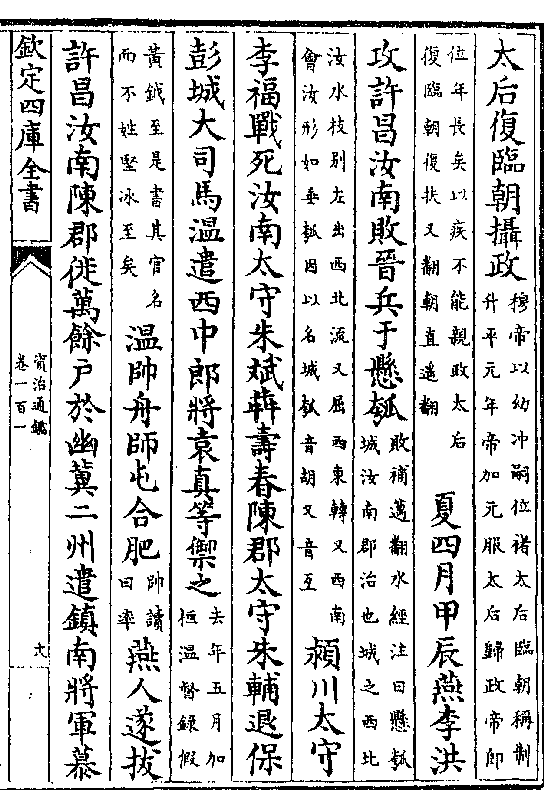 太后復臨朝攝政穆帝以幼冲嗣位禇太后臨朝稱制升平元年帝加元服太后歸政帝即
位年長矣以疾不能親政太后復臨朝復扶又翻朝直遥翻夏四月甲辰燕李洪
攻許昌汝南敗晉兵于懸瓠敗補邁翻水經注曰懸瓠城汝南郡治也城之西北
汝水枝别左出西北流又屈西東轉又西南會汝形如垂瓠因以名城瓠音胡又音互潁川太守
李福戰死汝南太守朱斌犇壽春陳郡太守朱輔退保
彭城大司馬温遣西中郎將袁真等禦之去年五月加桓温督錄假
黄鉞至是書其官名而不姓堅冰至矣温帥舟師屯合肥帥讀曰率燕人遂拔
許昌汝南陳郡徙萬餘户於幽冀二州遣鎮南將軍慕
欽定四庫全書
資治通鑑
卷一百一